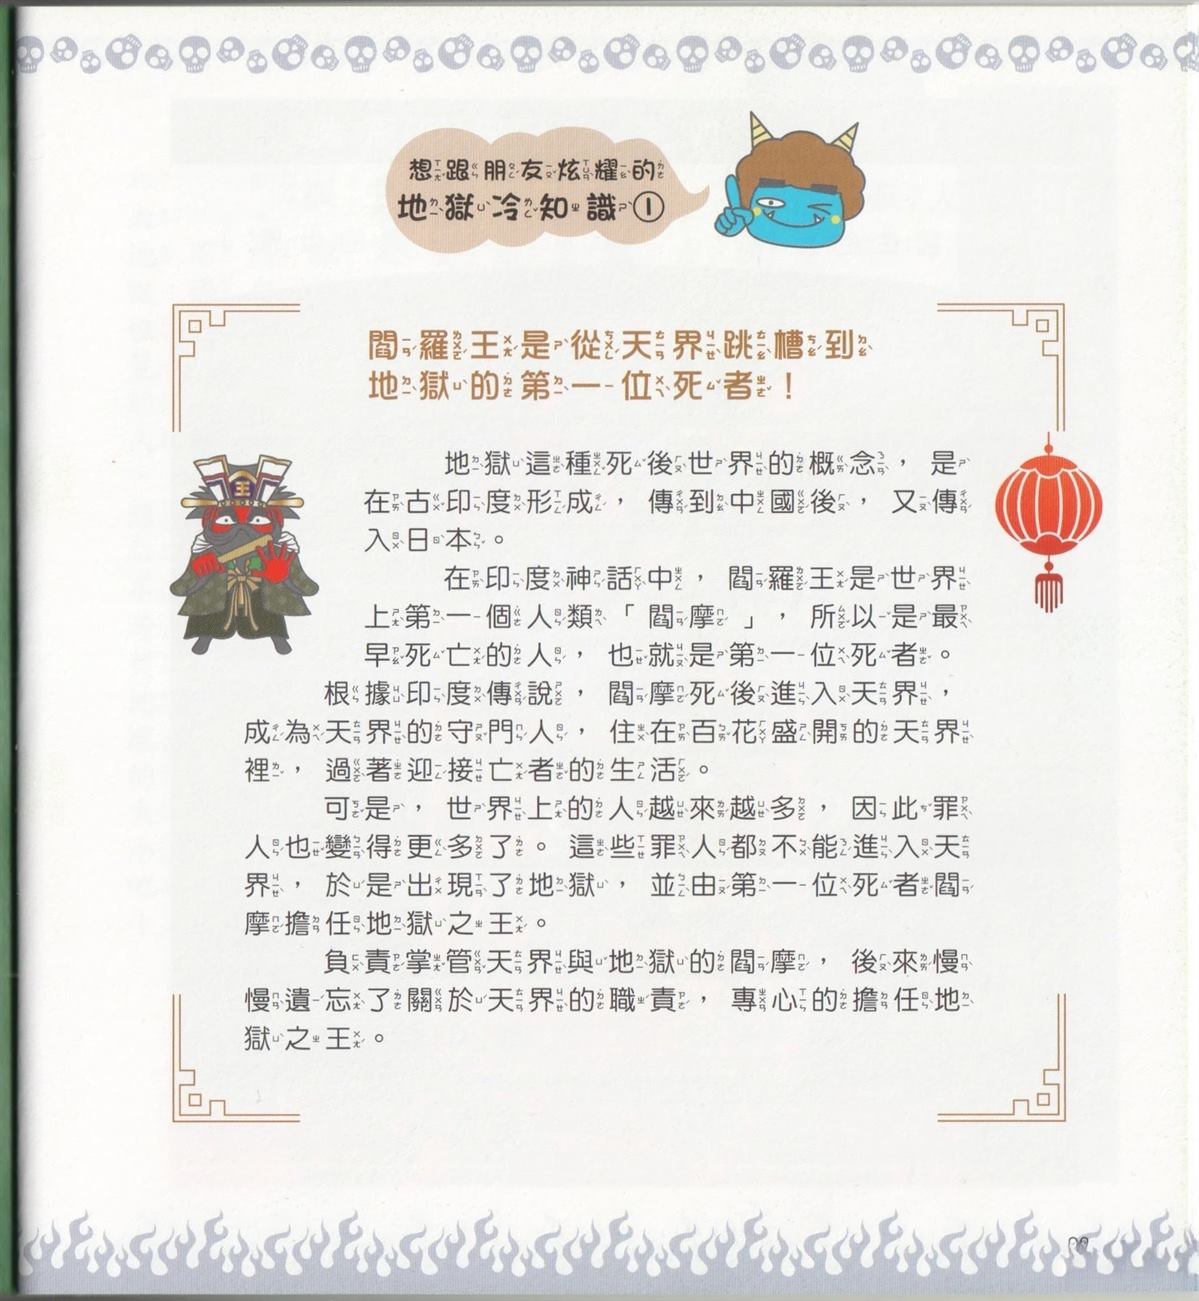 想跟朋友炫耀的
地獄冷知識①
閻羅王是從天界跳槽到
地獄的第一位死者！
地獄這種死後世界的概念，是
在古印度形成，傳到中國後，又傳
入日本。
在印度神話中，閻羅王是世界
上第一個人類「閻摩」，所以是最
早死亡的人，也就是第一位死者。
根據印度傳說，閻摩死後進入天界，
成為天界的守門人，住在百花盛開的天界
裡，過著迎接亡者的生活。
可是，世界上的人越來越多，因此罪
人也變得更多了。這些罪人都不能進入天
界，於是出現了地獄，並由第一位死者閻
摩擔任地獄之王。
負責掌管天界與地獄的閻摩，後來慢
慢遺忘了關於天界的職責，專心的擔任地
獄之王。
王